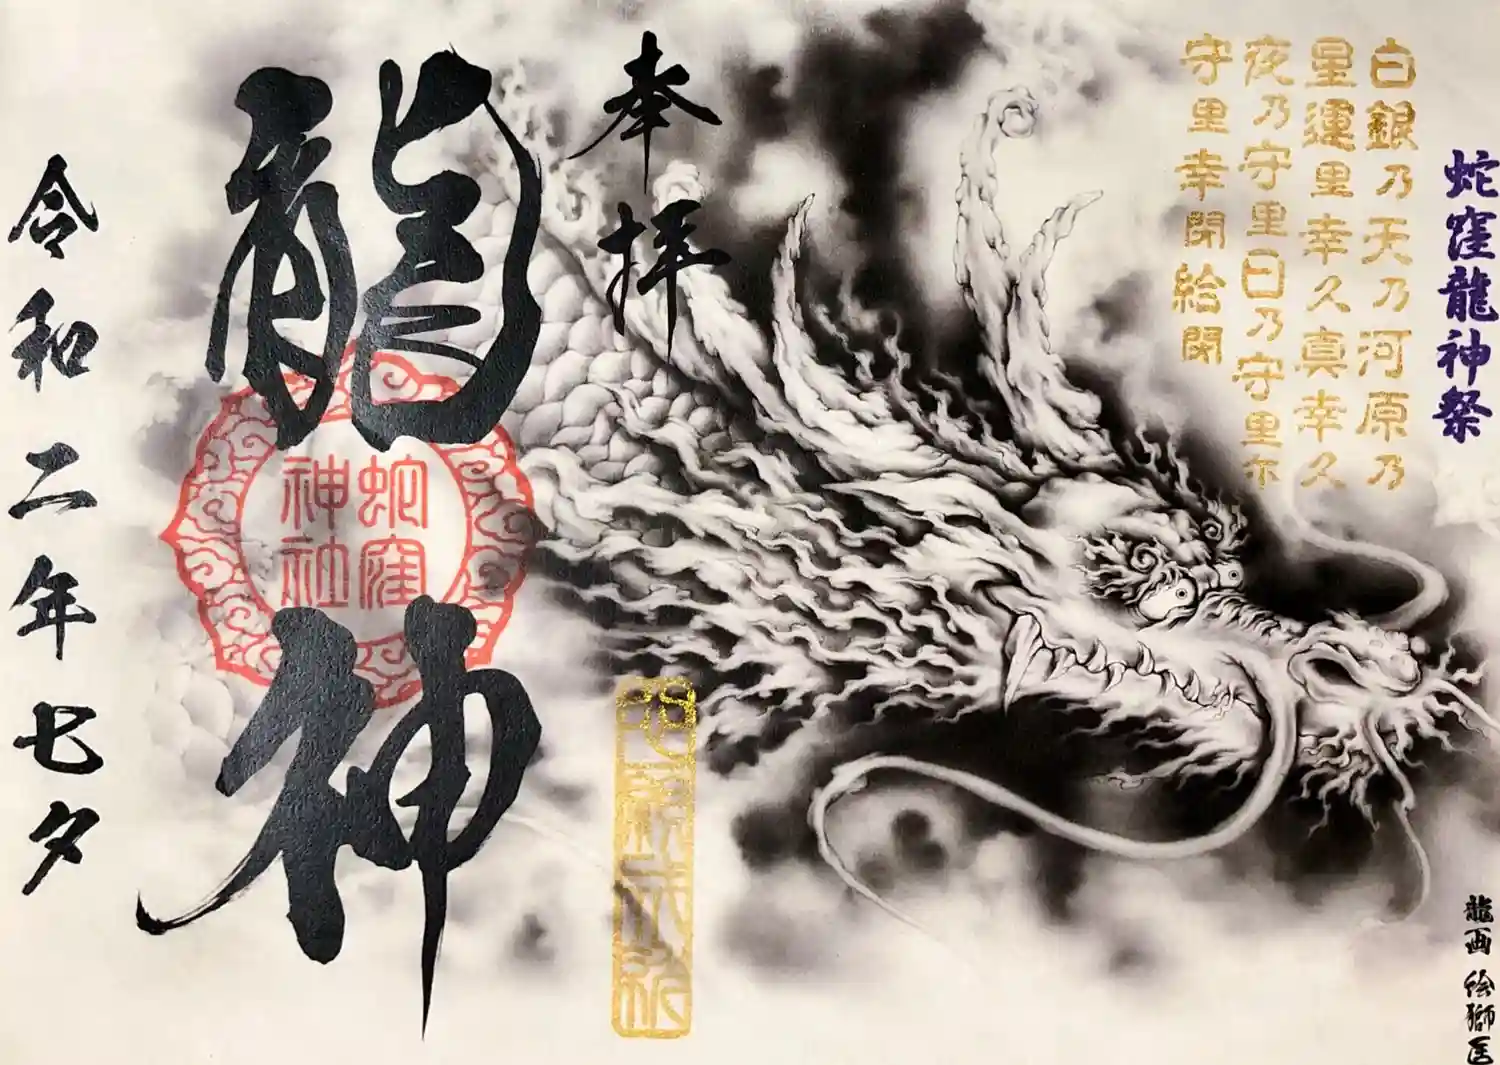 蛇窪龍神祭
白銀乃天乃河原乃
星運里幸久真幸久
夜乃守里日乃守里尓
守里幸閉給閉
奉拝
龍神
蛇窪
神社
令和二年七夕
龍画